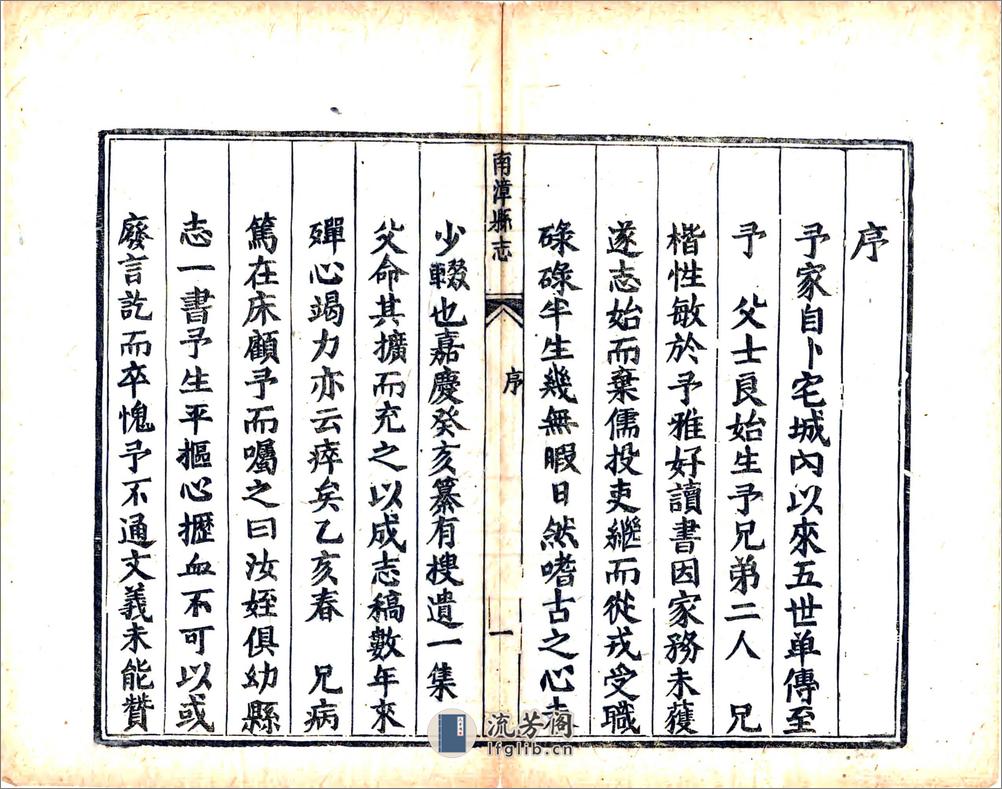 序
予家自卜宅城內以來五世单傳至
予　父士良始生予兄弟二人　兄
楷性敏於予雅好讀書因家務未獲
遂志始而棄儒投吏繼而從戎受職
碌碌半生幾無暇日然嗜古之心未
南漳縣志
序
一
少輟也嘉慶癸亥纂有搜遺一集
父命其擴而充之以成志稿數年來
殫心竭力亦云瘁矣乙亥春　兄病
篤在床顧予而囑之曰汝姪俱幼縣
志一書予生平摳心攊血不可以或
廢言訖而卒愧予不通文義未能贊
流芳阁
lfglib.cn